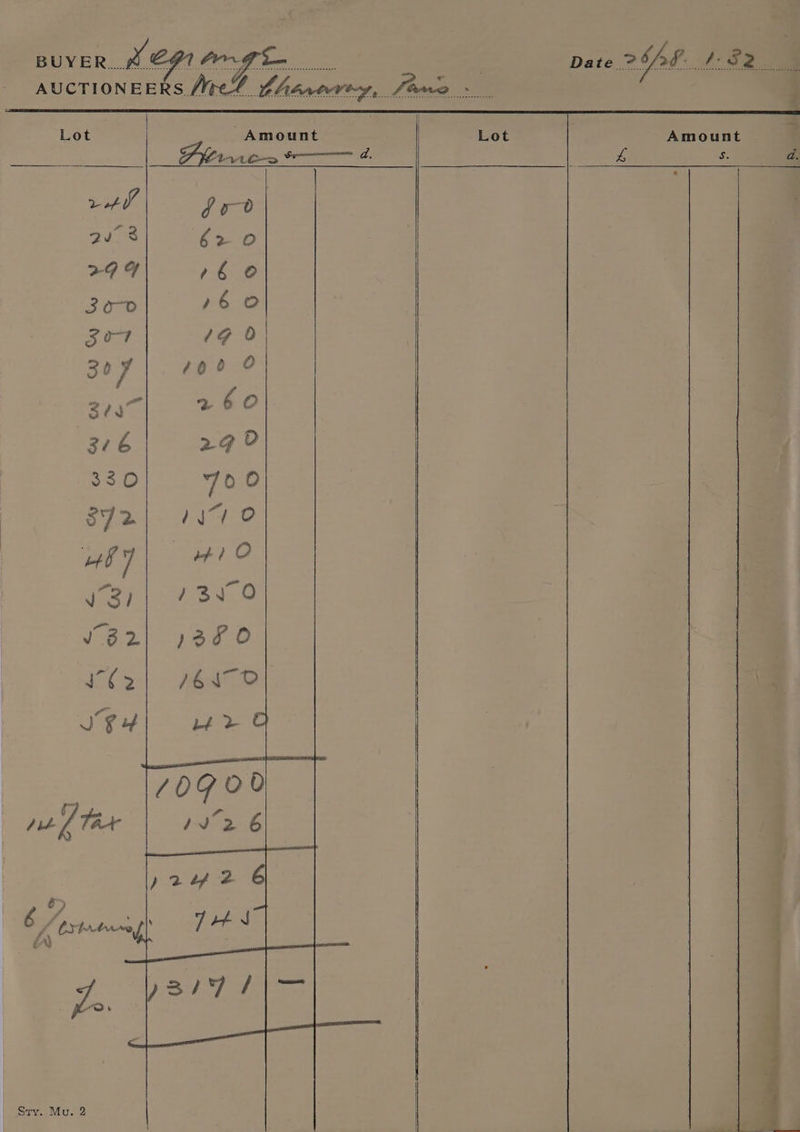 BUYER
Date 26/28. 1. 32
AUCTIONEERS Mes Charavay, Paris
Lot Amount Lot Amount
Francs s. d. £ s. d.
248 800
253 620
299 160
300 160
301 190
307 1000
315 260
316 290
330 700
372 1510
487 410
531 1350
532 1380
562 1650
584 420
10900
14% tax 1526
12426
6% 745
13171 —
Srv. Mu. 2